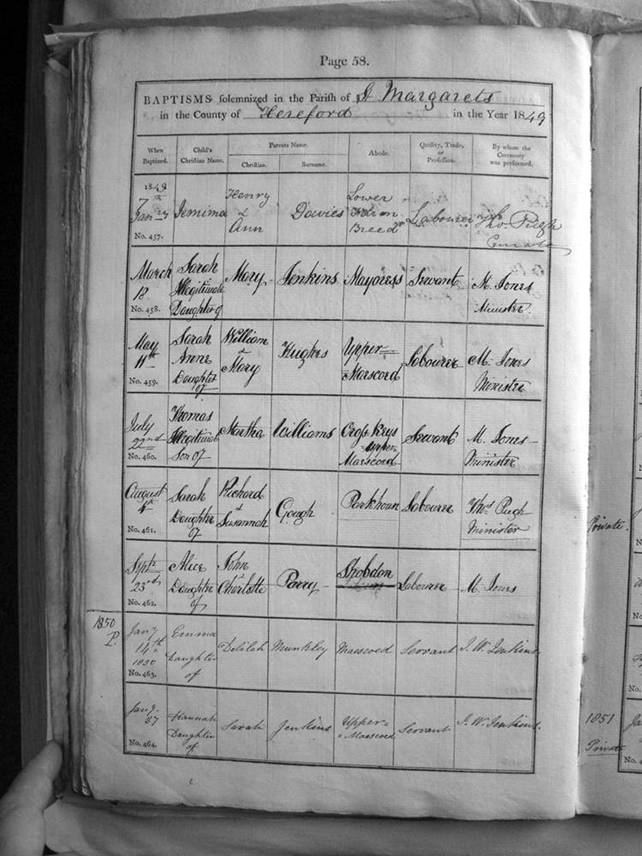 Page 58.
BAPTISMS solemnized in the Parish of St Margarets
in the County of Hereford in the Year 1849
When Baptized. Child's Christian Name. Parents Name. Abode. Quality, Trade, or Profession. By whom the Ceremony was performed.
Christian. Surname.
1849
7th Jany Jemima Henry & Ann Davies Lower Labourer Thos. Pugh Curate
No. 457.
March 18 Sarah Illegitimate Daughter of Mary Jenkins Servant M. Jones Minister
No. 458.
May 11th Sarah Anne Daughter of William & Mary Hughes Upper Maescoed Labourer M. Jones Minister
No. 459.
July 22nd Thomas Illegitimate Son of Martha Williams Cross Keys Upper Maescoed Servant M. Jones Minister
No. 460.
August Sarah Daughter of Richard & Susannah Gough Labourer Thos. Pugh Minister
No. 461.
Septr 23rd Alice Daughter of John & Charlotte Parry Shobdon Labourer M. Jones
No. 462.
1850
P.
Jany 14th 1850 Emma Daughter of Delilah Munkley Maescoed Servant J. W. Jenkins
No. 463.
Jany. 27 Hannah Daughter of Sarah Jenkins Upper Maescoed Servant J. W. Jenkins.
No. 464.
Private.
1851
Private